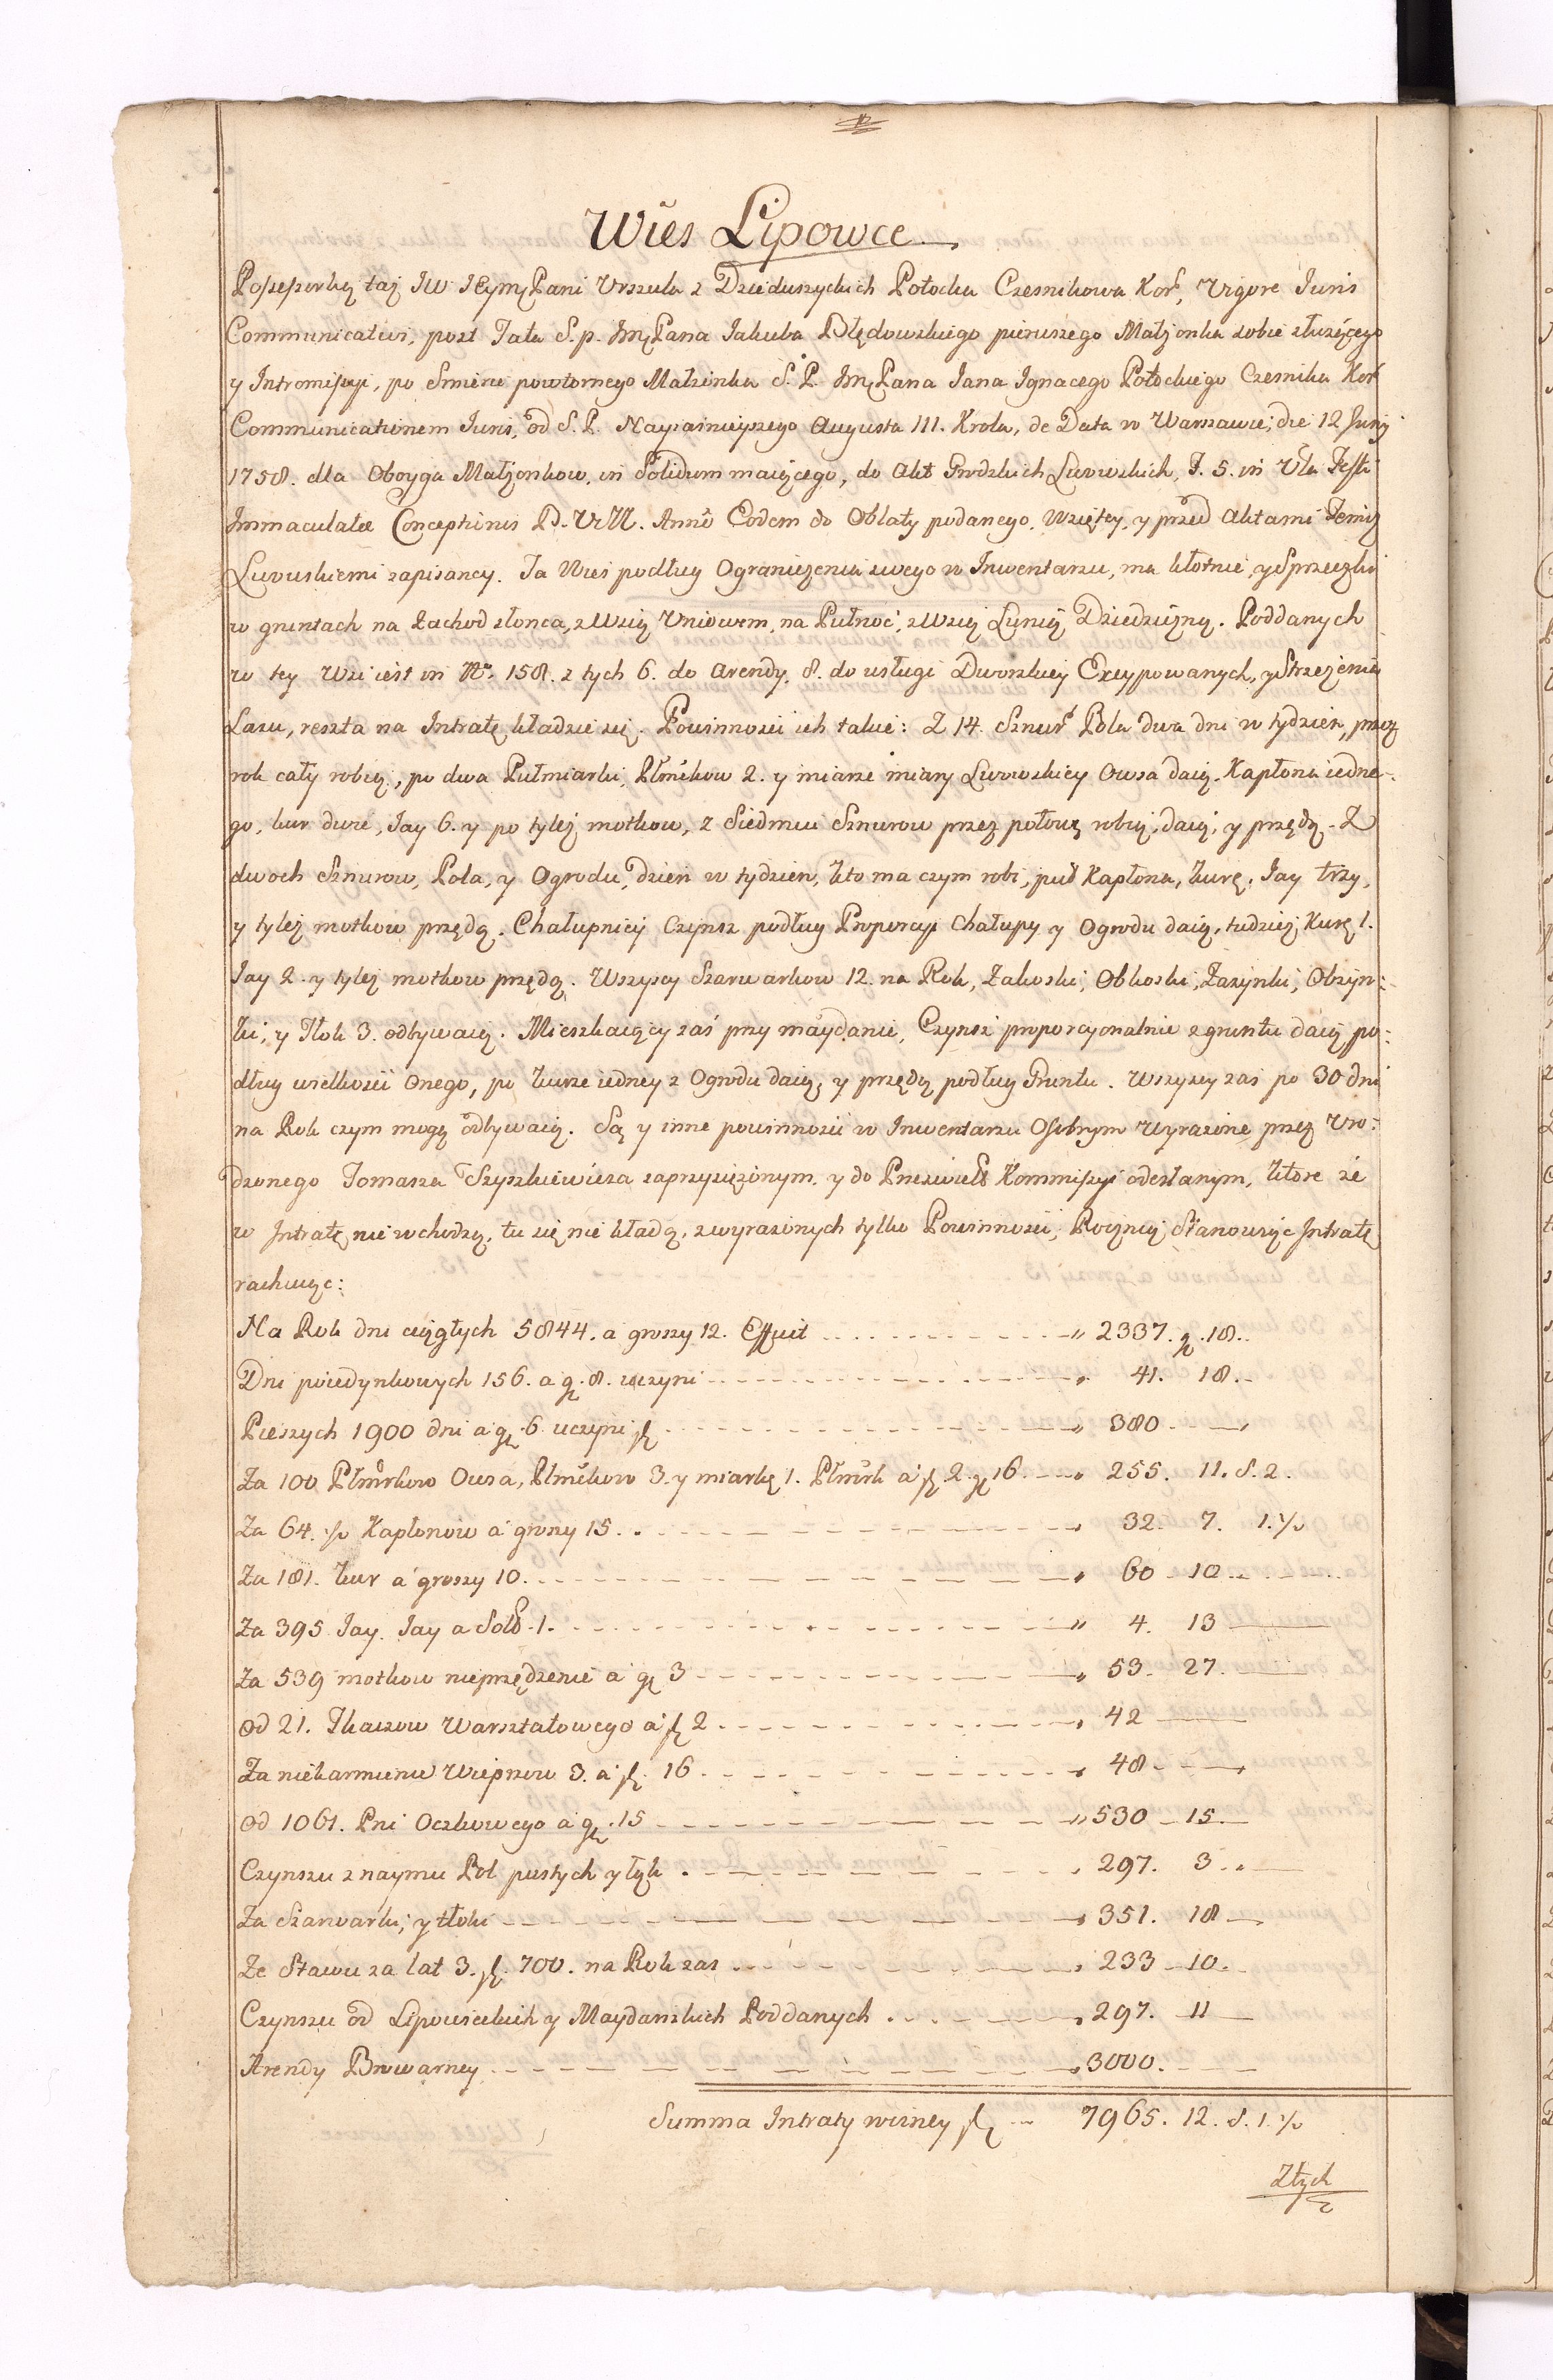 Wies Lipowce
Possessorką tąj JW JEymPani Urszula z Dzieduszyckich Potocka Czesnikowa Kor, Vigore Juris
Communicativi, post Fata S.p. JmPana Jakuba Błędowskiego pierwszego Małżonka sobie służącego
y Intromissyi, po Smierci powtornego Małżonka S.P. JmPana Jana Ignacego Potockiego Czesnika Kor
Communicationem Juris, od S.P. Nayiasnieyszego Augusta III. Krola, de Data w Warszawie, die 12 Junij
1758. dla Oboyga Małżonkow, in Solidum maiącego, do Akt Grodzkich Lwowskich, F. 5. in Vla Festi
Immaculatæ Conceptionis B.V.M. Anno Eodem do Oblaty podanego. Wziętey, y przed Aktami Temiż
Lwowskiemi zapisaney. Ta Wieś podług Ograniczenia swego w Inwentarzu, ma kłotnie, y Sprzeczki
w gruntach na Zachod słonca, z Wsią Uniowem, na Pułnoc, z Wsią Łunią Dziedziczną. Poddanych
w tey Wsi iest in No. 158. z tych 6. do Arendy. 8. do usługi Dworskiey Excypowanych, y Strzeżenia
Lasu, reszta na Intratę kładzie się. Powinnosci ich takie: Z 14. Sznur Pola dwa dni w tydzien, przez
rok cały robią, po dwa Pułmiarki, Płmckow 2. y miarze miary Lwowskiey Owsa daią. Kapłona iedne-
go, kur dwie, Jay 6. y po tyleż motkow, z Siedmiu Sznurow przez połowę robią, daią, y przędą. Z
dwoch Sznurow, Pola, y Ogrodu, dzień w tydzien, kto ma czym robi, puł Kapłona, kurę. Jay trzy,
y tyleż motkow przędą. Chałupnicy Czynsz podług Proporcyi Chałupy y Ogrodu daią, tudzież Kurę 1.
Jay 2. y tyleż motkow przędą. Wszyscy Szarwarkow 12. na Rok, Zakoski, Obkoski, Zażynki, Obżyn:
ki, y Tłok 3. odbywaią. Mieszkaiący zaś przy maydanie, Czynsz proporcyonalnie z gruntu daią, po:
dług wielkosci onego, po kurze iedney z Ogrodu daią, y przędą podług Gruntu. Wszyscy zaś po 30 dni
na Rok czym mogą odbywaią. Są y inne powinnosci w Inwentarzu Osobnym wyrażone przez Uro:
dzonego Tomasza Szyszkiewicza zaprzysiężonym, y do Przeświet Kommissyi odesłanym, ktore że
w Intratę nie wchodzą, tu się nie kładą, z wyrażonych tylko Powinnosci, Roczney Stanowiąc Intratę
rachuiąc:
Na Rok dni ciągłych 5844. a groszy 12. Effecit 2337. g. 18.
Dni poiedynkowych 156. a g. 8. uczyni 41. 18.
Pieszych 1900 dni a g. 6 uczyni f 380
Za 100 Płmrkow Owsa, Płmckow 3. y miarkę 1. Płmrk a f 2. g 16. 255. 11. S. 2.
Za 64. ½ Kapłonow a groszy 15. 32. 7. 1.½
Za 181. kur a groszy 10. 60 10
Za 395 Jay. Jay a Sold. 1. 4. 13
Za 539 motkow nieprzędzenie a g 3 53. 27.
od 21. Tkaczow Warsztatowego a f 2 42
Za niekarmienie Wieprzow 3. a f. 16 48
od 1061. Pni Oczkowego a g. 15 530 15.
Czynszu z naymu Pol pustych y łąk 297. 3.
Za Szarwarki, y tłoki 351. 18
Ze Stawu za lat 3. f. 700. na Rok zas 233 10.
Czynszu od Lipowieckich y Maydanskich Poddanych 297. 11
Arendy Browarney 3000.
Summa Intraty wiśney f 7965. 12. S. 1.½
Złych